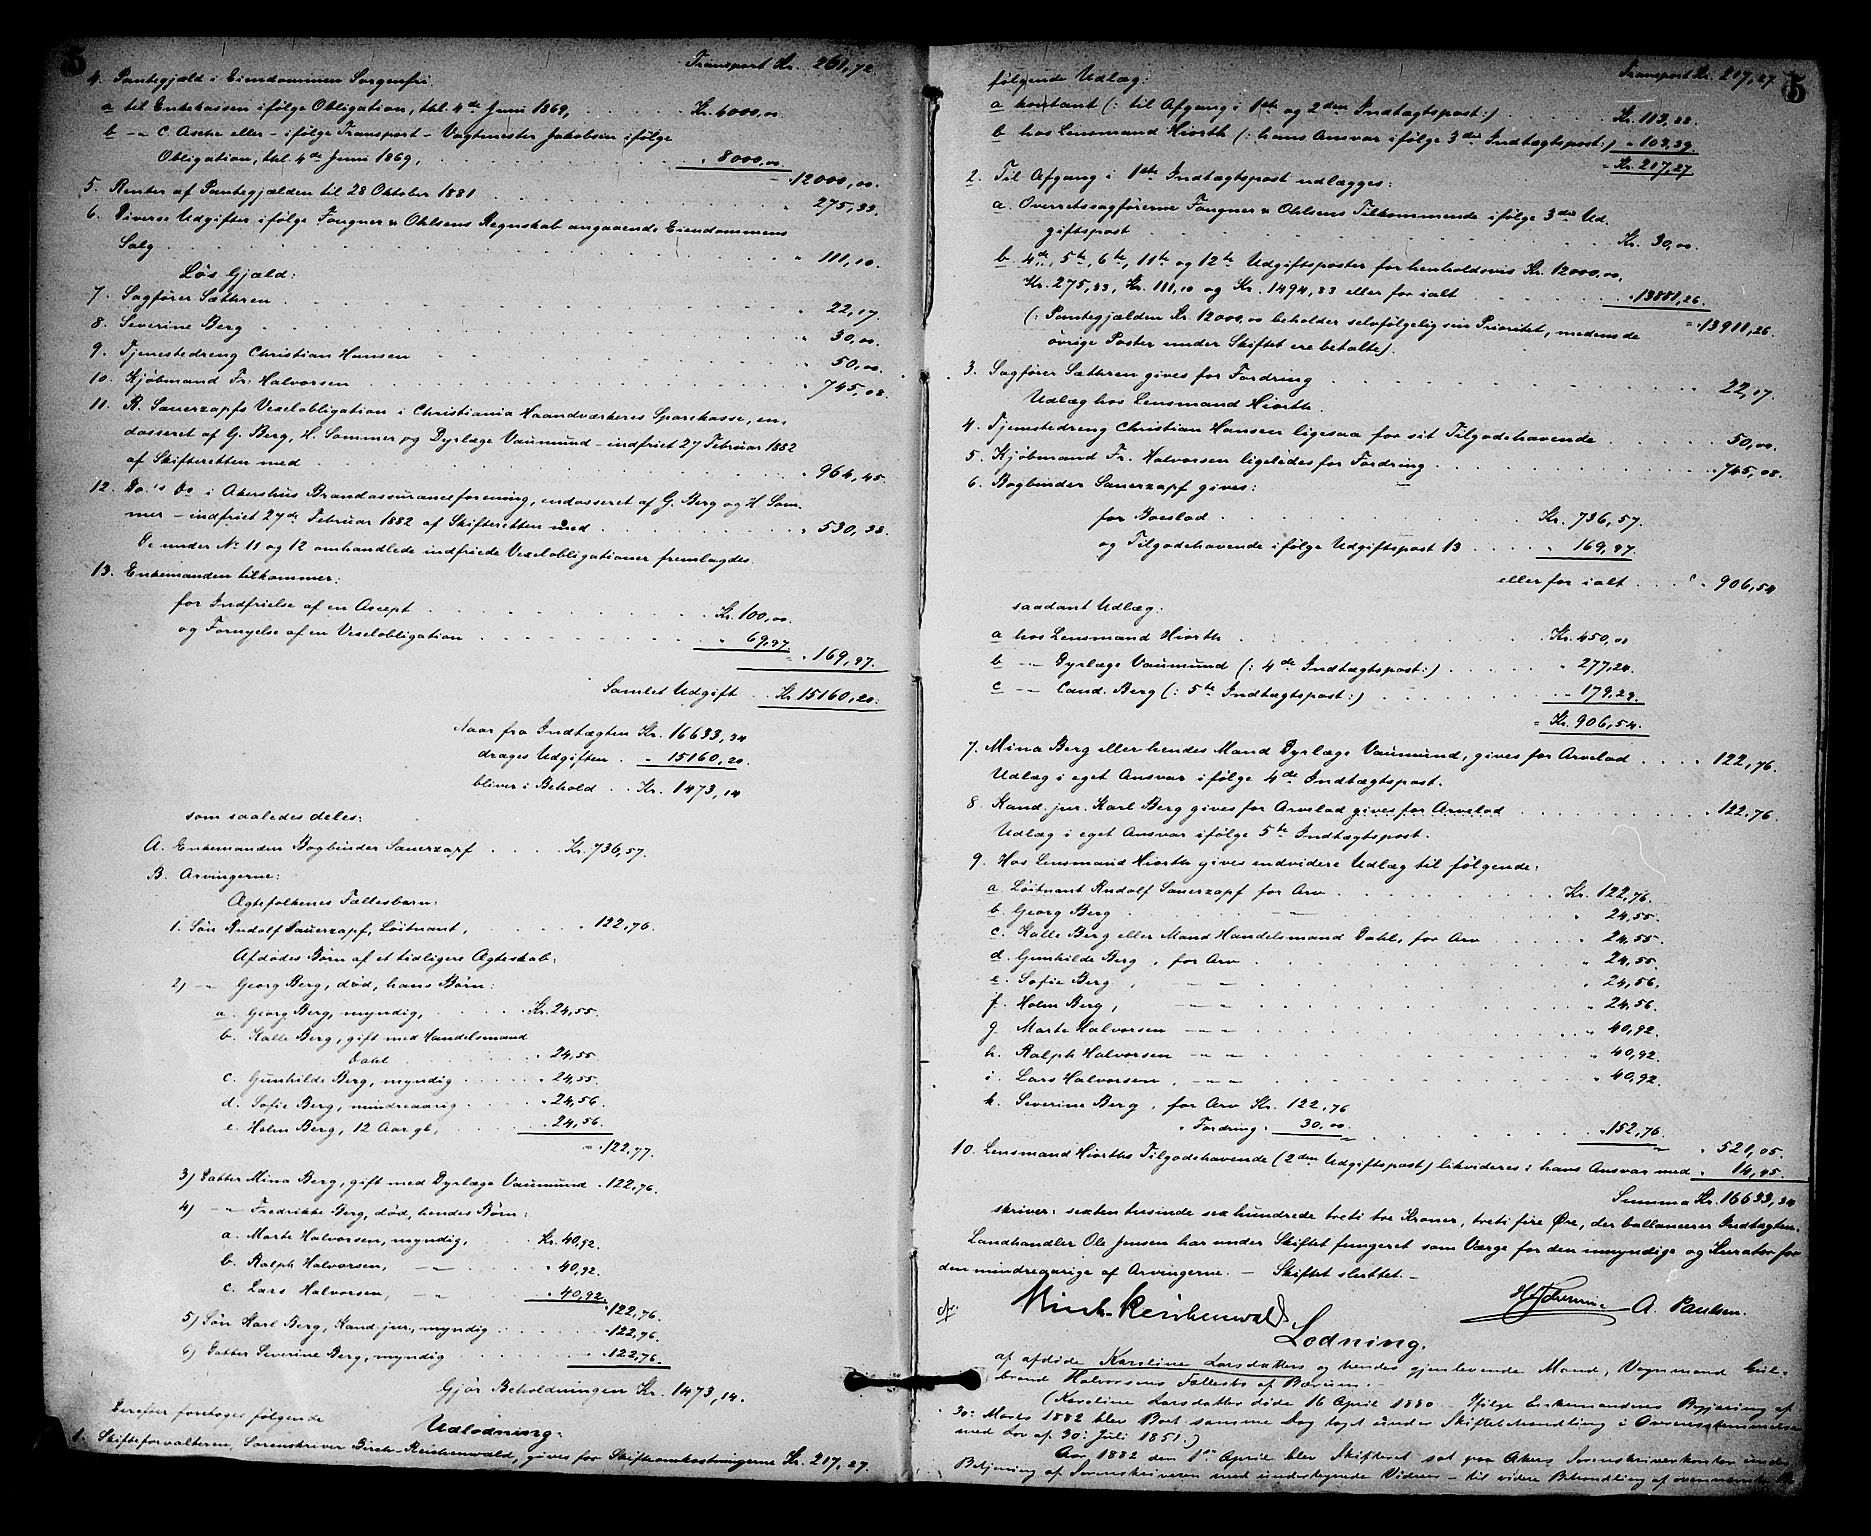 5
Transport Kr. 261,72
4. Pantegjæld i Eiendommen Sorgenfri:
a til Enkekassen ifølge Obligation, thl. 4de Juni 1869, Kr. 4000,00
b -"- C. Asche eller - ifølge Transport - Vagtmester Jakobsen ifølge
Obligation, thl. 4de Juni 1869, " 8000,00
" 12000,00.
5. Renter af Pantegjælden til 28 Oktober 1881 " 275,33.
6. Diverse Udgifter ifølge Fougner & Ohlsens Regnskab angaaende Eiendommens
Salg " 111,10.
Løs Gjæld:
7. Sagfører Sæthren " 22,17.
8. Severine Berg " 30,00.
9. Tjenestedreng Christian Hansen " 50,00.
10. Kjøbmand Fr: Halvorsen " 745,08.
11. R. Sauerzapfs Vexelobligation i Christiania Haandværkeres Sparekasse, en,
dosseret af G. Berg, H. Sommer og Dyrlæge Vaumund - indfriet 27 Februar 1882
af Skifteretten med " 964,45.
12. Do.'s Do i Akershus Brandassuranceforening, endosseret af G. Berg og H. Som,
mer - indfriet 27de Februar 1882 af Skifteretten med " 530,38.
De under No 11 og 12 omhandlede indfriede Vexelobligationer fremlagdes.
13. Enkemanden tilkommer:
for Indfrielse af en Accept Kr. 100,00.
og Fornyelse af en Vexelobligation " 69,97.
" 169,97.
Samlet Udgift Kr. 15160,20.
Naar fra Indtægten Kr. 16633,34
drages Udgiften " 15160,20.
bliver i Behold Kr. 1473,14
som saaledes deles:
A. Enkemanden Bogbinder Sauerzapf Kr. 736,57.
B. Arvingerne:
Ægtefolkenes Fællesbarn:
1. Søn Rudolf Sauerzapf, Løitnant, " 122,76.
Afdødes Børn af et tidligere Ægteskab:
2) -"- Georg Berg, død, hans Børn:
a. Georg Berg, myndig, Kr. 24,55.
b. Kalle Berg, gift med Handelsmand
Dahl " 24,55
c. Gunhilde Berg, myndig " 24,55.
d. Sofie Berg, mindreaarig " 24,56
e. Holm Berg, 12 Aar gl, " 24,56.
" 122,77.
3) Datter Mina Berg, gift med Dyrlæge Vaumund " 122,76.
4) -"- Fredrikke Berg, død, hendes Børn:
a. Marte Halvorsen, myndig, Kr. 40,92.
b. Ralph Halvorsen, -"- " 40,92.
c. Lars Halvorsen, -"- " 40,92.
" 122,76.
5) Søn Karl Berg, Kand. jur., myndig " 122,76.
6) Datter Severine Berg, myndig " 122,76.
Gjør Beholdningen Kr. 1473,14.
Derefter foretoges følgende
Udlodning:
1. Skifteforvalteren, Sorenskriver Birch-Reichenwald, gives for Skifteomkostningerne Kr. 217,27.
5
Transport Kr. 217,27
følgende Udlæg:
a kontant (: til Afgang i 1ste og 2den Indtægtspost:) Kr. 113,88
b hos Lensmand Hiorth (: hans Ansvar ifølge 3die Indtægtspost:) " 103,39.
" Kr. 217,27
2. Til Afgang i 1ste Indtægtspost udlægges:
a. Overretssagførerne Fougner & Ohlsens Tilkommende ifølge 3die Ud,
giftspost Kr. 30,00.
b. 4de, 5te, 6te, 11te og 12te Udgiftsposter for henholdsvis Kr. 12000,00,
Kr. 275,33, Kr. 111,10 og Kr. 1494,83 eller for ialt " 13881,26.
" 13911,26.
(: Pantegjælden Kr. 12000,00 beholder selvfølgelig sin Prioritet, medens de
øvrige Poster under Skiftet ere betalte).
3. Sagfører Sæthren gives for Fordring 22,17.
Udlæg hos Lensmand Hiorth.
4. Tjenestedreng Christian Hansen ligesaa for sit Tilgodehavende 50,00.
5. Kjøbmand Fr. Halvorsen ligeledes for Fordring " 745,08.
6. Bogbinder Sauerzapf gives:
for Boeslod Kr. 736,57.
og Tilgodehavende ifølge Udgiftspost 13 " 169,97.
eller for ialt " 906,54
saadant Udlæg:
a hos Lensmand Hiorth Kr. 450,00
b -"- Dyrlæge Vaumund (: 4de Indtægtspost:) " 277,24.
c -"- Cand. Berg (: 5te Indtægtspost:) " 179,29.
" Kr. 906,54.
7. Mina Berg eller hendes Mand Dyrlæge Vaumund, gives for Arvelod " 122,76.
Udlæg i eget Ansvar ifølge 4de Indtægtspost.
8. Kand. jur. Karl Berg gives for Arvelod gives for Arvelod " 122,76.
Udlæg i eget Ansvar ifølge 5te Indtægtspost.
9. Hos Lensmand Hiorth gives endvidere Udlæg til følgende:
a Løitnant Rudolf Sauerzapf for Arv Kr. 122,76.
b. Georg Berg -"- " 24,55
c. Kalle Berg eller Mand Handelsmand Dahl, for Arv " 24,55.
d. Gunhilde Berg, for Arv " 24,55.
e. Sofie Berg, -"- " 24,56.
f. Holm Berg, -"- " 24,56.
g. Marte Halvorsen -"- " 40,92.
h. Ralph Halvorsen -"- " 40,92
i. Lars Halvorsen, -"- " 40,92.
k. Severine Berg, for Arv Kr. 122,76
" Fordring " 30,00
" 152,76.
" 521,05.
10. Lensmand Hiorths Tilgodehavende (2den Udgiftspost) likvideres i hans Ansvar med " 14,45.
Summa Kr. 16633,34
skriver: sexten tusinde sex hundrede treti tre Kroner, treti fire Øre, der ballancerer Indtægten.
Landhandler Ole Jensen har under Skiftet fungeret som Værge for den umyndige og Kurator for
den mindreaarige af Arvingerne. - Skiftet sluttet. -
Birch-Reichenwald A. Paulsen.
Lodning.
af afdøde Karoline Larsdatters og hendes gjenlevende Mand, Vognmand Gul-
brand Halvorsens Fællesbo af Bærum. -
(Karoline Larsdatter døde 16 April 1880. Ifølge Enkemandens Begjæring af
30. Marts 1882 blev Boet samme Dag taget under Skiftebehandling i Overensstemmelse
med Lov af 30: Juli 1851.)
Aar 1882 den 1ste April blev Skifteret sat paa Akers Sorenskriverkontor under
Betjening af Sorenskriveren med undertegnede Vidner - til videre Behandling af ovennævnte Bo.